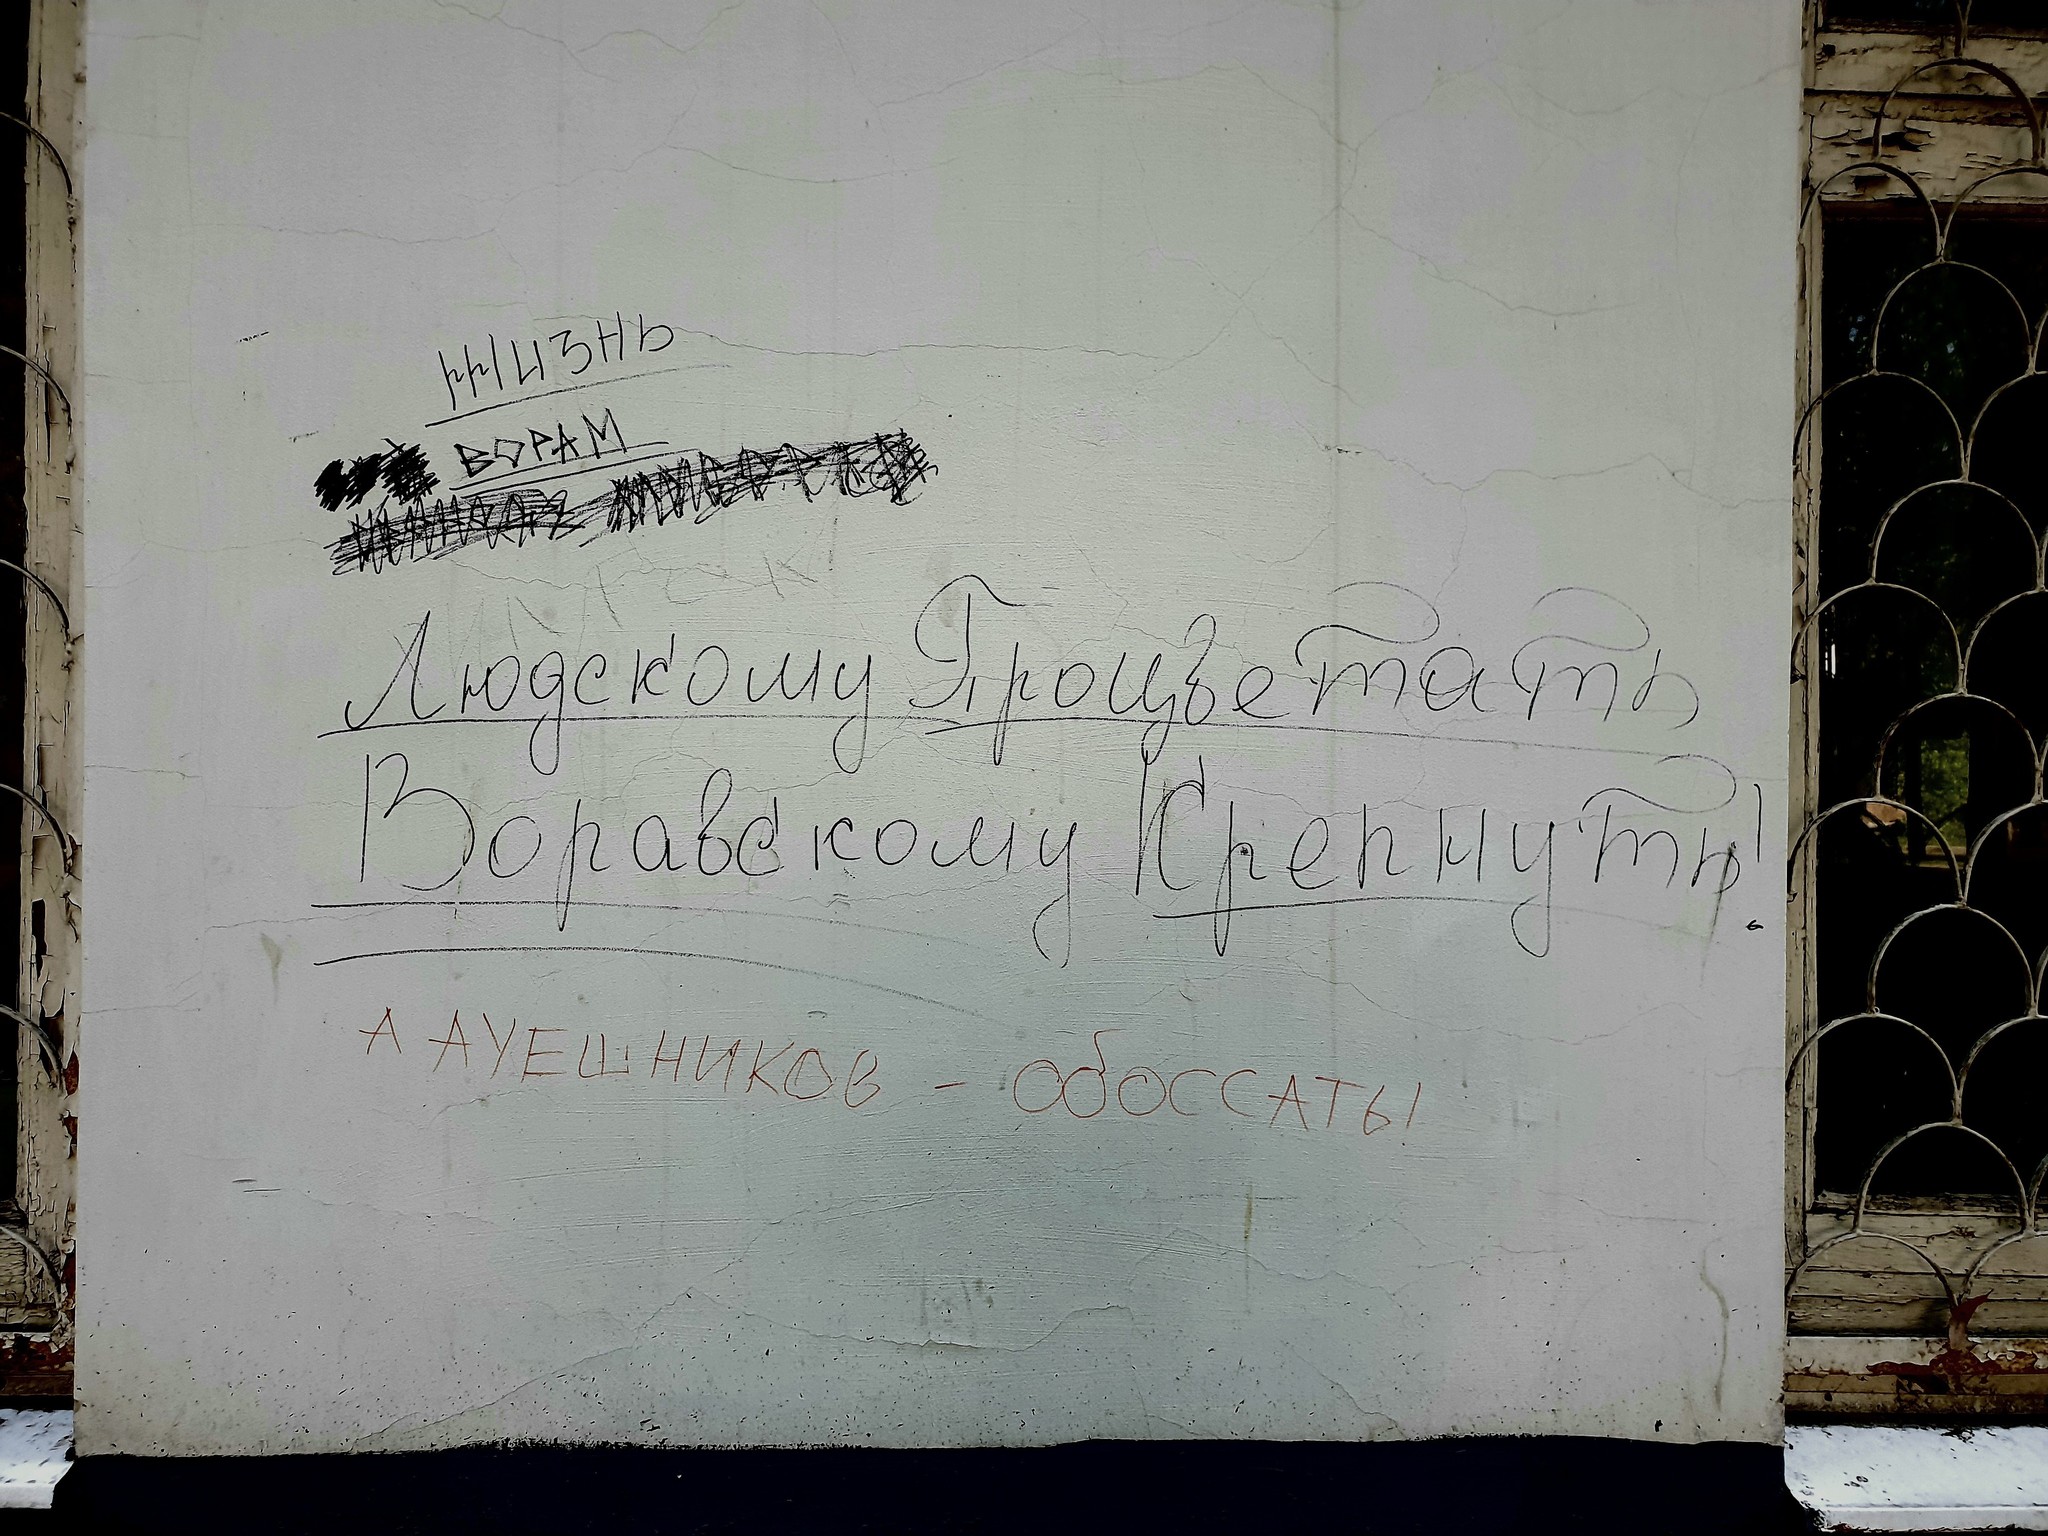 ЖИЗНЬ
ВОРАМ
Людскому Процветать
Воравскому Крепнуть!
А АУЕШНИКОВ - ОбОССАТЫ